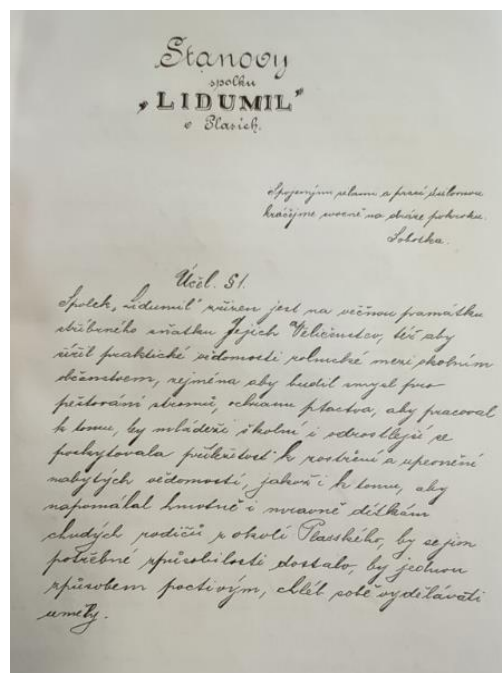 Stanovy
spolku
„LIDUMIL"
v Plasích.
Spojenými silami a prací duševnou
kráčejme svorně na dráze pokroku.
Sobotka.
Účel. §1.
Spolek „Lidumil" zřízen jest na věčnou pramátku
stříbrného sňatku Jejich Veličenstev, též aby
šířil praktické vědomosti rolnické mezi okolním
občanstvem, zejména aby budil smysl pro
pěstování stromů, ochranu ptactva, aby pracoval
k tomu, by mládeži školní i odrostlejší se
poskytovala příležitost k rozšíření a upevnění
nabytých vědomostí, jakož i k tomu, aby
napomáhal hmotně i mravně dítkám
chudých rodičů z okolí Plasského, by se jim
potřebné způsobilosti dostalo, by jednou
způsobem poctivým, chléb sobě vydělávati
uměly.